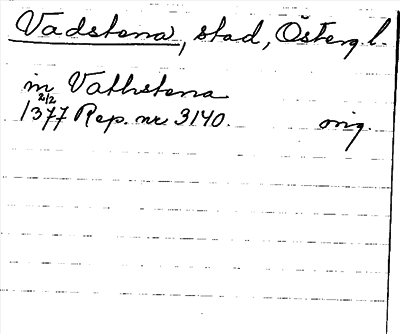 Vadstena, stad, Österg.l.
in Vathstena
2/2
1377 Rep. nr 3140. orig.